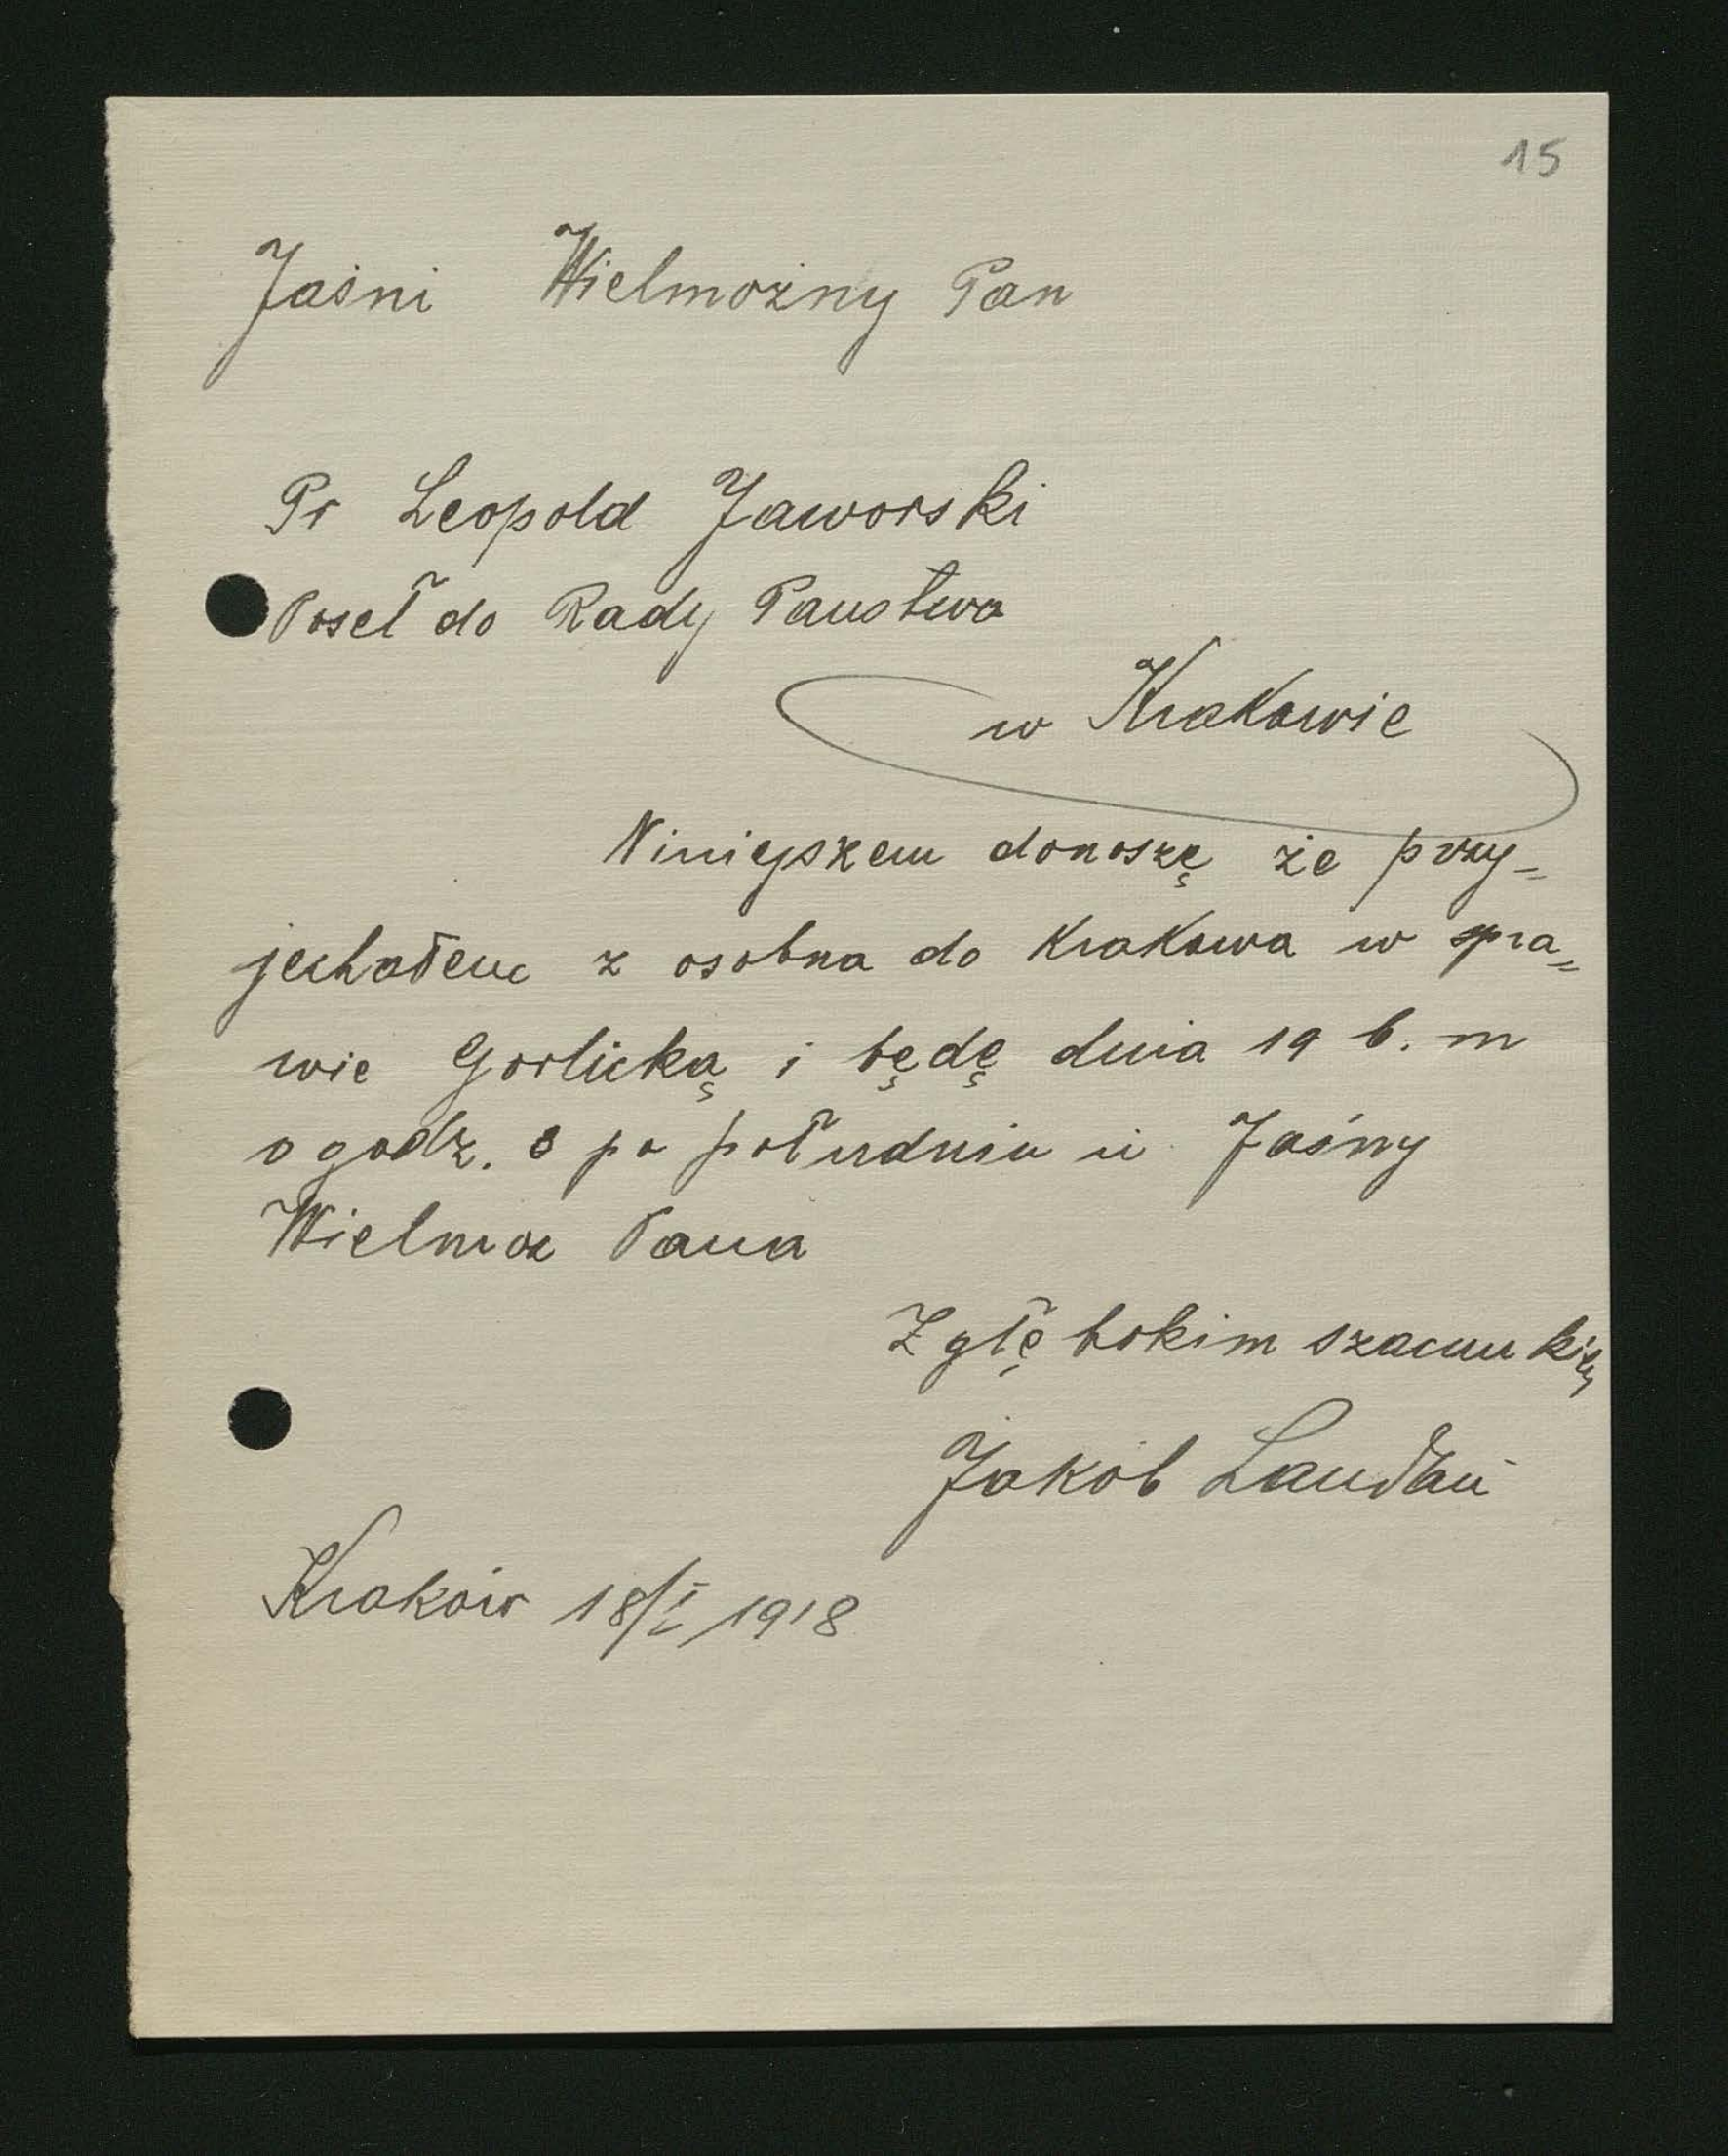 15
Jaśni Wielmożny Pan
Pr Leopold Jaworski
Poseł do Rady Państwa
w Krakowie
Niniejszem donoszę że przy=
jechałem z osobna do Krakowa w spra=
wie Gorlicką i będę dnia 19 b. m
o godz. 3 po południu u Jaśny
Wielmoż Pana
Z głębokim szacunkiem
Jakób Landau
Kraków 18/I 1918